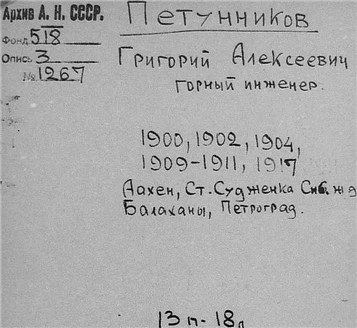 Архив А. Н. СССР.
Фонд 518
Опись 3
№ 1267
Петунников
Григорий Алексеевич
горный инженер.
1900, 1902, 1904,
1909-1911, 1917
Аахен, Ст. Судженка Сиб. ж д
Балаханы, Петроград.
13 п - 18 л